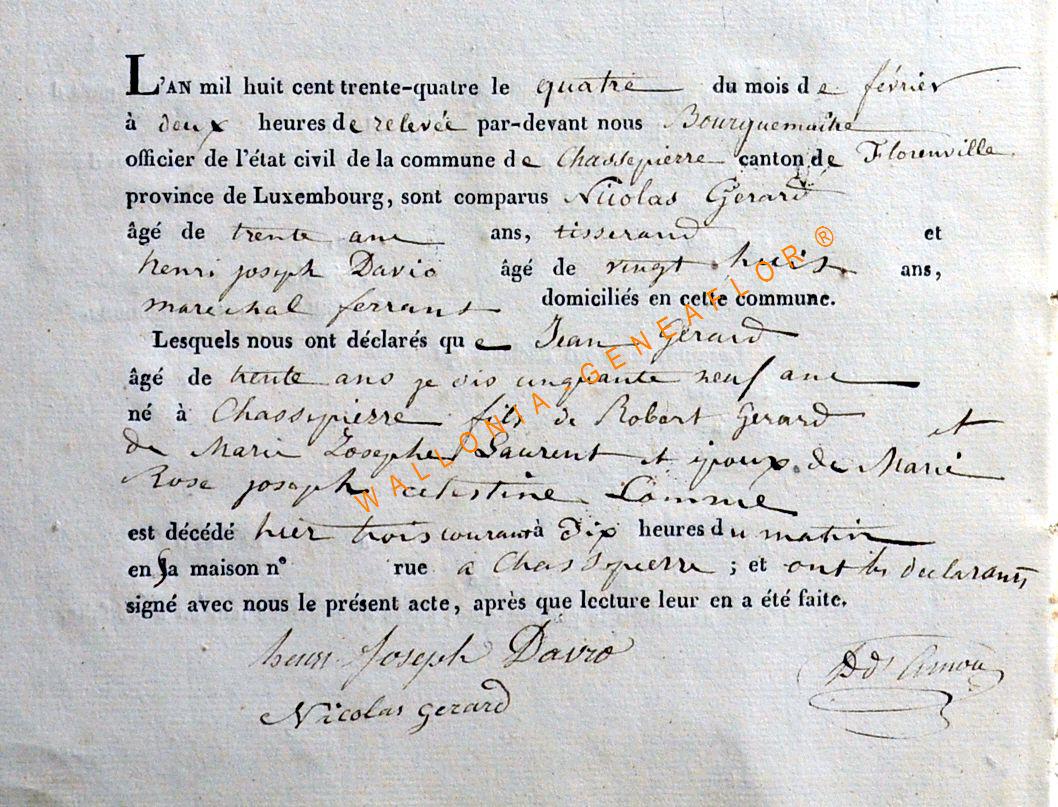 L'AN mil huit cent trente-quatre le quatre du mois de février
à deux heures de relevée par-devant nous
officier de l'état civil de la commune de Chassepierre canton de Florenville
province de Luxembourg, sont comparus Nicolas Gerard
âgé de trente ans ans, tisserand et
henri joseph David âgé de vingt huit ans,
marechal ferrant domiciliés en cette commune.
Lesquels nous ont déclarés que Jean Gerard
âgé de trente ans je dis cinquante neuf ans
né à Chassepierre fils de Robert Gerard et
de Marie Josephe Laurent et époux de Marie
Rose joseph celestine Lomme
est décédé hier trois courant à dix heures du matin
en sa maison n° rue à Chassepierre ; et ont les declarants
signé avec nous le présent acte, après que lecture leur en a été faite.
henri Joseph David
Nicolas gerard
WALLONIA-GENEAFLOR ®